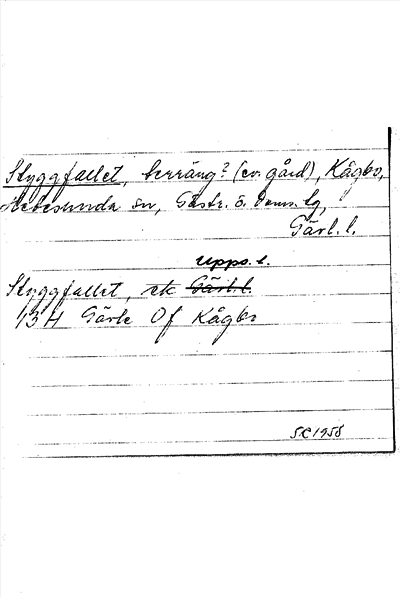 Styggfallet, terräng? (ev. gård), Kågbo,
Hedesunda sn, Gästr. ö. doms. lg,
Gävl. l.
Upps. l.
Styggfallet, ek Gävl. l.
13H Gävle 0f Kågbo
SC 1958